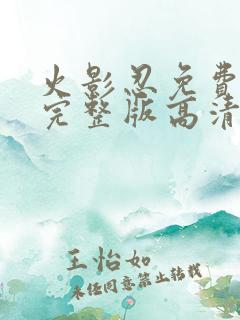 火影忍免費
完整版高清
王怡如
未经同意禁止转载